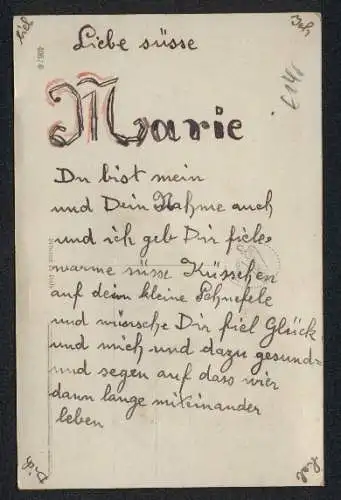 fiel
Ich
Liebe süsse
Marie
Du bist mein
und Dein Nahme auch
und ich geb Dir fiele
warme süsse Küsschen
auf dein kleine Schnefele
und wünsche Dir fiel Glück
und mich und dazu gesund=
und segen auf dass wier
dann lange miteinander
leben
Dich